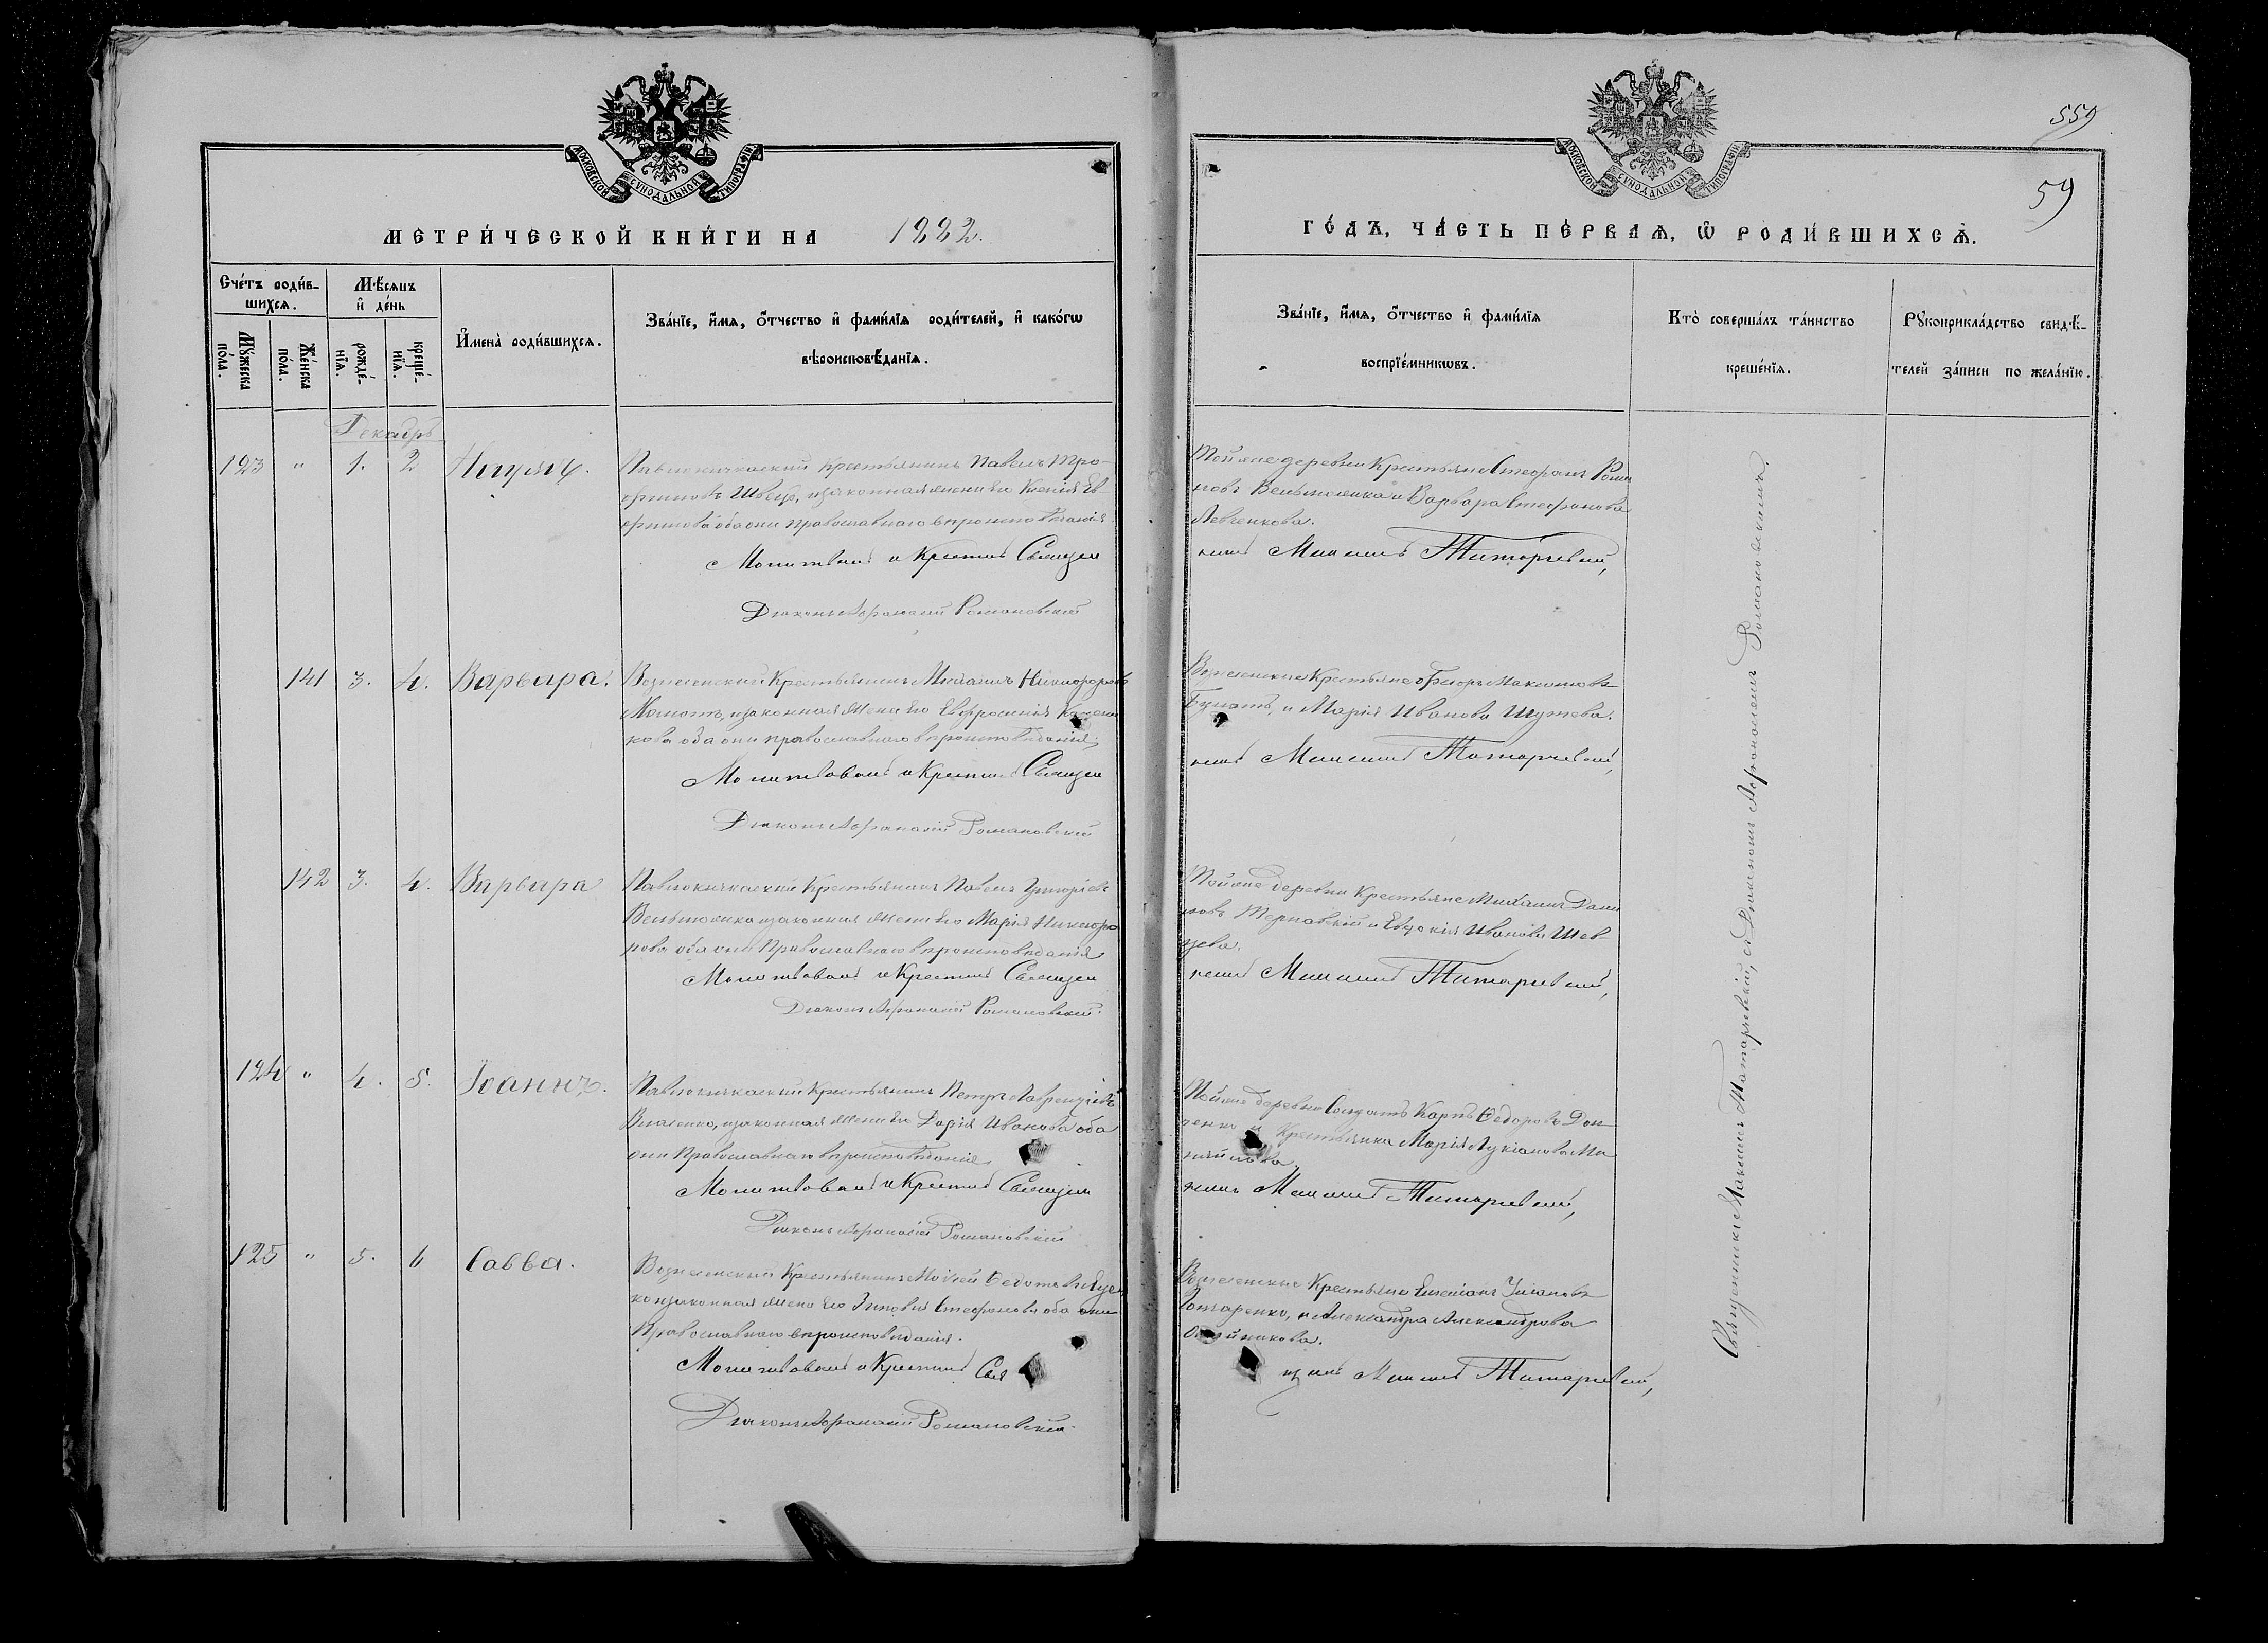 МОСКОВСКОЙ СУНОДАЛЬНОЙ ТИПОГРАФІИ
МЕТРИ́ЧЕСКОЙ КНИ́ГИ НА 1882.
Сче́тъ роди́в-
шихсѧ.
Мѣ́сѧцъ
и҆ де́нь
Мꙋ́жеска
по́ла.
Же́нска
по́ла.
рожде́-
нїѧ.
креще́-
нїѧ.
И҆мена̀ роди́вшихсѧ.
Зва́нїе, и҆́мѧ, ѻ҆́тчество и҆ фами́лїѧ роди́телей, и҆ како́гѡ
вѣроисповѣ́данїѧ.
Декабрь
123 " 1. 2
Павлокичкаский Крестьянинъ Павелъ Тро-
фимовъ Швецъ, и законная жена его Ксенія Ев-
фимова оба они православнаго вѣроисповѣданія
Молитвовалъ и Крестилъ Священ
Діаконъ Афанасій Романовскій
141 3. 4. Варвара.
Вознесенский Крестьянинъ Михаилъ Никифоровъ
Мамотъ, и законная жена его Евфросинія
кова оба они православнаго вѣроисповѣданія
Молитвовалъ и Крестилъ Священ
Діаконъ Афанасій Романовскій
142 3. 4. Варвара
Павлокичкаский Крестьянинъ Павелъ Григорьевъ
и законная жена его Марія Никифо
рова оба они Православнаго вѣроисповѣданія
Молитвовалъ и Крестилъ Священ
Діаконъ Афанасій Романовскій.
124 " 4. 5. Іоаннъ.
Павлокичкаский Крестьянинъ Петръ Лаврентіевъ
Власенко, и законная жена его Дарія Иванова оба
они Православнаго вѣроисповѣданія
Молитвовалъ и Крестилъ Священ
Діаконъ Афанасій Романовскій
125 " 5. 6 Савва.
Вознесенский Крестьянинъ Моисей Федотовъ
ко и законная жена его Зиновія Стефанова оба они
Православнаго вѣроисповѣданія.
Молитвовалъ и Крестилъ Свя
Діаконъ Афанасій Романовскій.
МОСКОВСКОЙ СУНОДАЛЬНОЙ ТИПОГРАФІИ
559
59
ГО́ДЪ, ЧА́СТЬ ПЕ́РВАѦ, Ѽ РОДИ́ВШИХСѦ.
Зва́нїе, и҆́мѧ, ѻ҆́тчество и҆ фами́лїѧ
воспрїе́мникѡвъ.
Кто̀ соверша́лъ та́инство
креще́нїѧ.
Рꙋкоприкла́дство свидѣ́-
телей за́писи по жела́нїю.
Той же деревни Крестьяне Стефанъ
и Варвара Стефанова
Левченкова.
никъ Максимъ Титаревскій,
Вознесенские Крестьяне Ѳеодоръ Максимовъ
и Марія Иванова Шутева.
никъ Максимъ Титаревскій,
Той же деревни Крестьяне Михаилъ Дани
ловъ Терновскій и Евдокія Иванова Шев-
цева.
никъ Максимъ Титаревскій,
Той же деревни Солдатъ Карпъ Ѳедоровъ Дон
ченко и Крестьянка Марія Лукіанова Ма
никъ Максимъ Титаревскій,
Вознесенские Крестьяне
Гончаренко, и Александра Александрова
Олейникова.
никъ Максимъ Титаревскій,
Священникъ Максимъ Титаревскій, съ Діакономъ Афанасіемъ Романовскимъ.